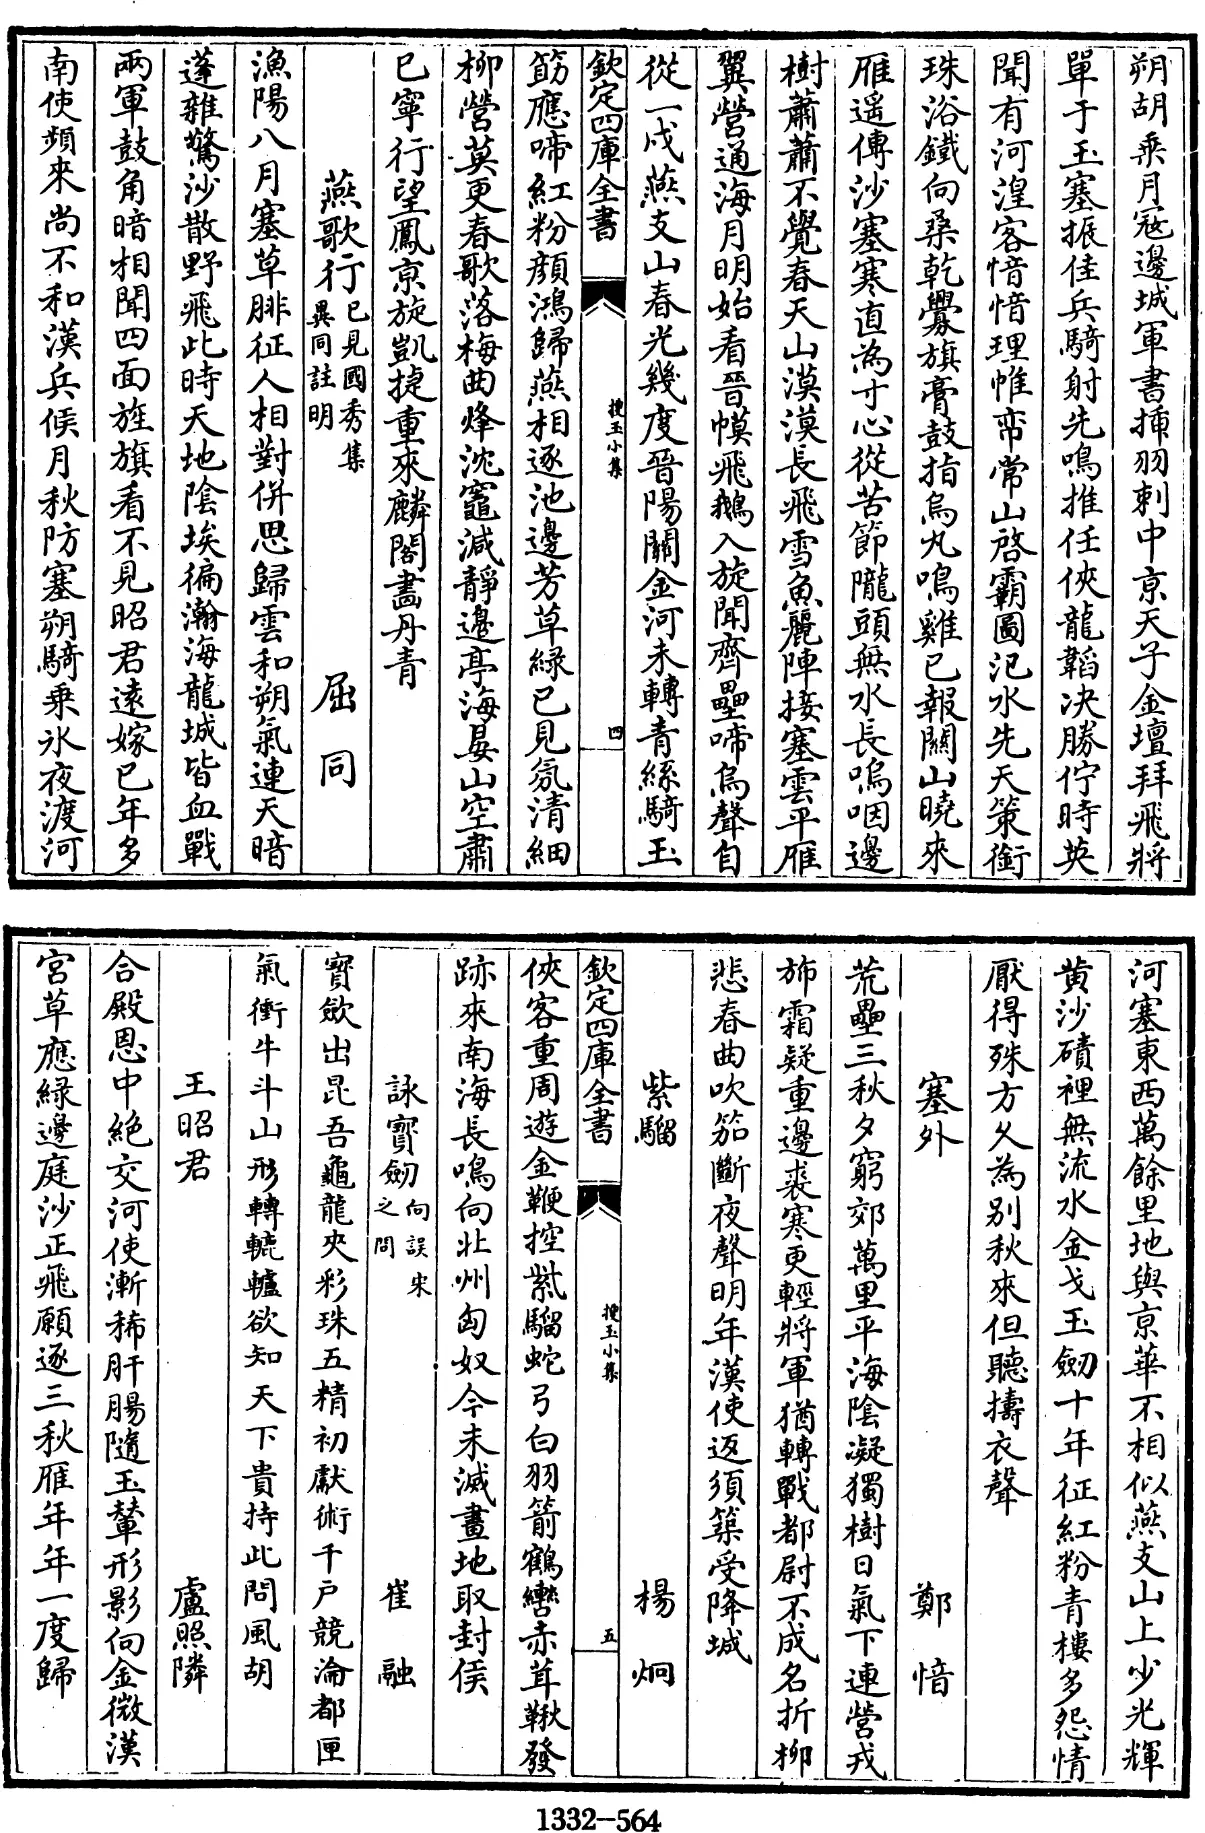 朔胡乘月寇邊城軍書揷羽刺中京天子金壇拜飛將
單于玉塞振佳兵騎射先鳴推任俠龍韜决勝佇時英
聞有河湟客愔愔理帷帟常山啓霸圖汜水先天策銜
珠浴鐵向桑乾釁旗膏鼓指烏丸鳴雞已報關山曉來
雁遥傳沙塞寒直為寸心從苦節隴頭無水長嗚咽邊
樹蕭蕭不覺春天山漠漠長飛雪魚麗陣接塞雲平雁
翼營通海月明始看晉幙飛鵝入旋聞齊壘啼烏聲自
從一戍燕支山春光幾度晉陽關金河未轉青絲騎玉
欽定四庫全書
搜玉小集
四
筯應啼紅粉顔鴻歸燕相逐池邊芳草緑已見氛清細
柳營莫更春歌落梅曲烽沈竈減静邊亭海晏山空肅
已寧行望鳳京旋凱捷重來麟閣畫丹青
燕歌行已見國秀集異同註明 屈同
漁陽八月塞草腓征人相對併思歸雲和朔氣連天暗
蓬雜驚沙散野飛此時天地陰埃徧瀚海龍城皆血戰
兩軍鼓角暗相聞四面旌旗看不見昭君遠嫁已年多
南使頻來尚不和漢兵候月秋防塞朔騎乗氷夜渡河
河塞東西萬餘里地與京華不相似燕支山上少光輝
黄沙磧裡無流水金戈玉劒十年征紅粉青樓多怨情
厭得殊方久為别秋來但聽擣衣聲
塞外 鄭愔
荒壘三秋夕窮郊萬里平海陰凝獨樹日氣下連營戎
斾霜疑重邊裘寒更輕將軍猶轉戰都尉不成名折柳
悲春曲吹笳斷夜聲明年漢使返須築受降城
紫騮 楊炯
欽定四庫全書
搜玉小集
五
俠客重周遊金鞭控紫騮蛇弓白羽箭鶴轡赤茸鞦發
跡來南海長鳴向北州匈奴今未滅畫地取封侯
詠寳劒向誤宋之問 崔融
寳劒出昆吾龜龍夾彩珠五精初獻術千戸競淪都匣
氣衝牛斗山形轉轆轤欲知天下貴持此問風胡
王昭君 盧照隣
合殿恩中絶交河使漸稀肝腸隨玉輦形影向金微漢
宫草應緑邊庭沙正飛願逐三秋雁年年一度歸
1332-564